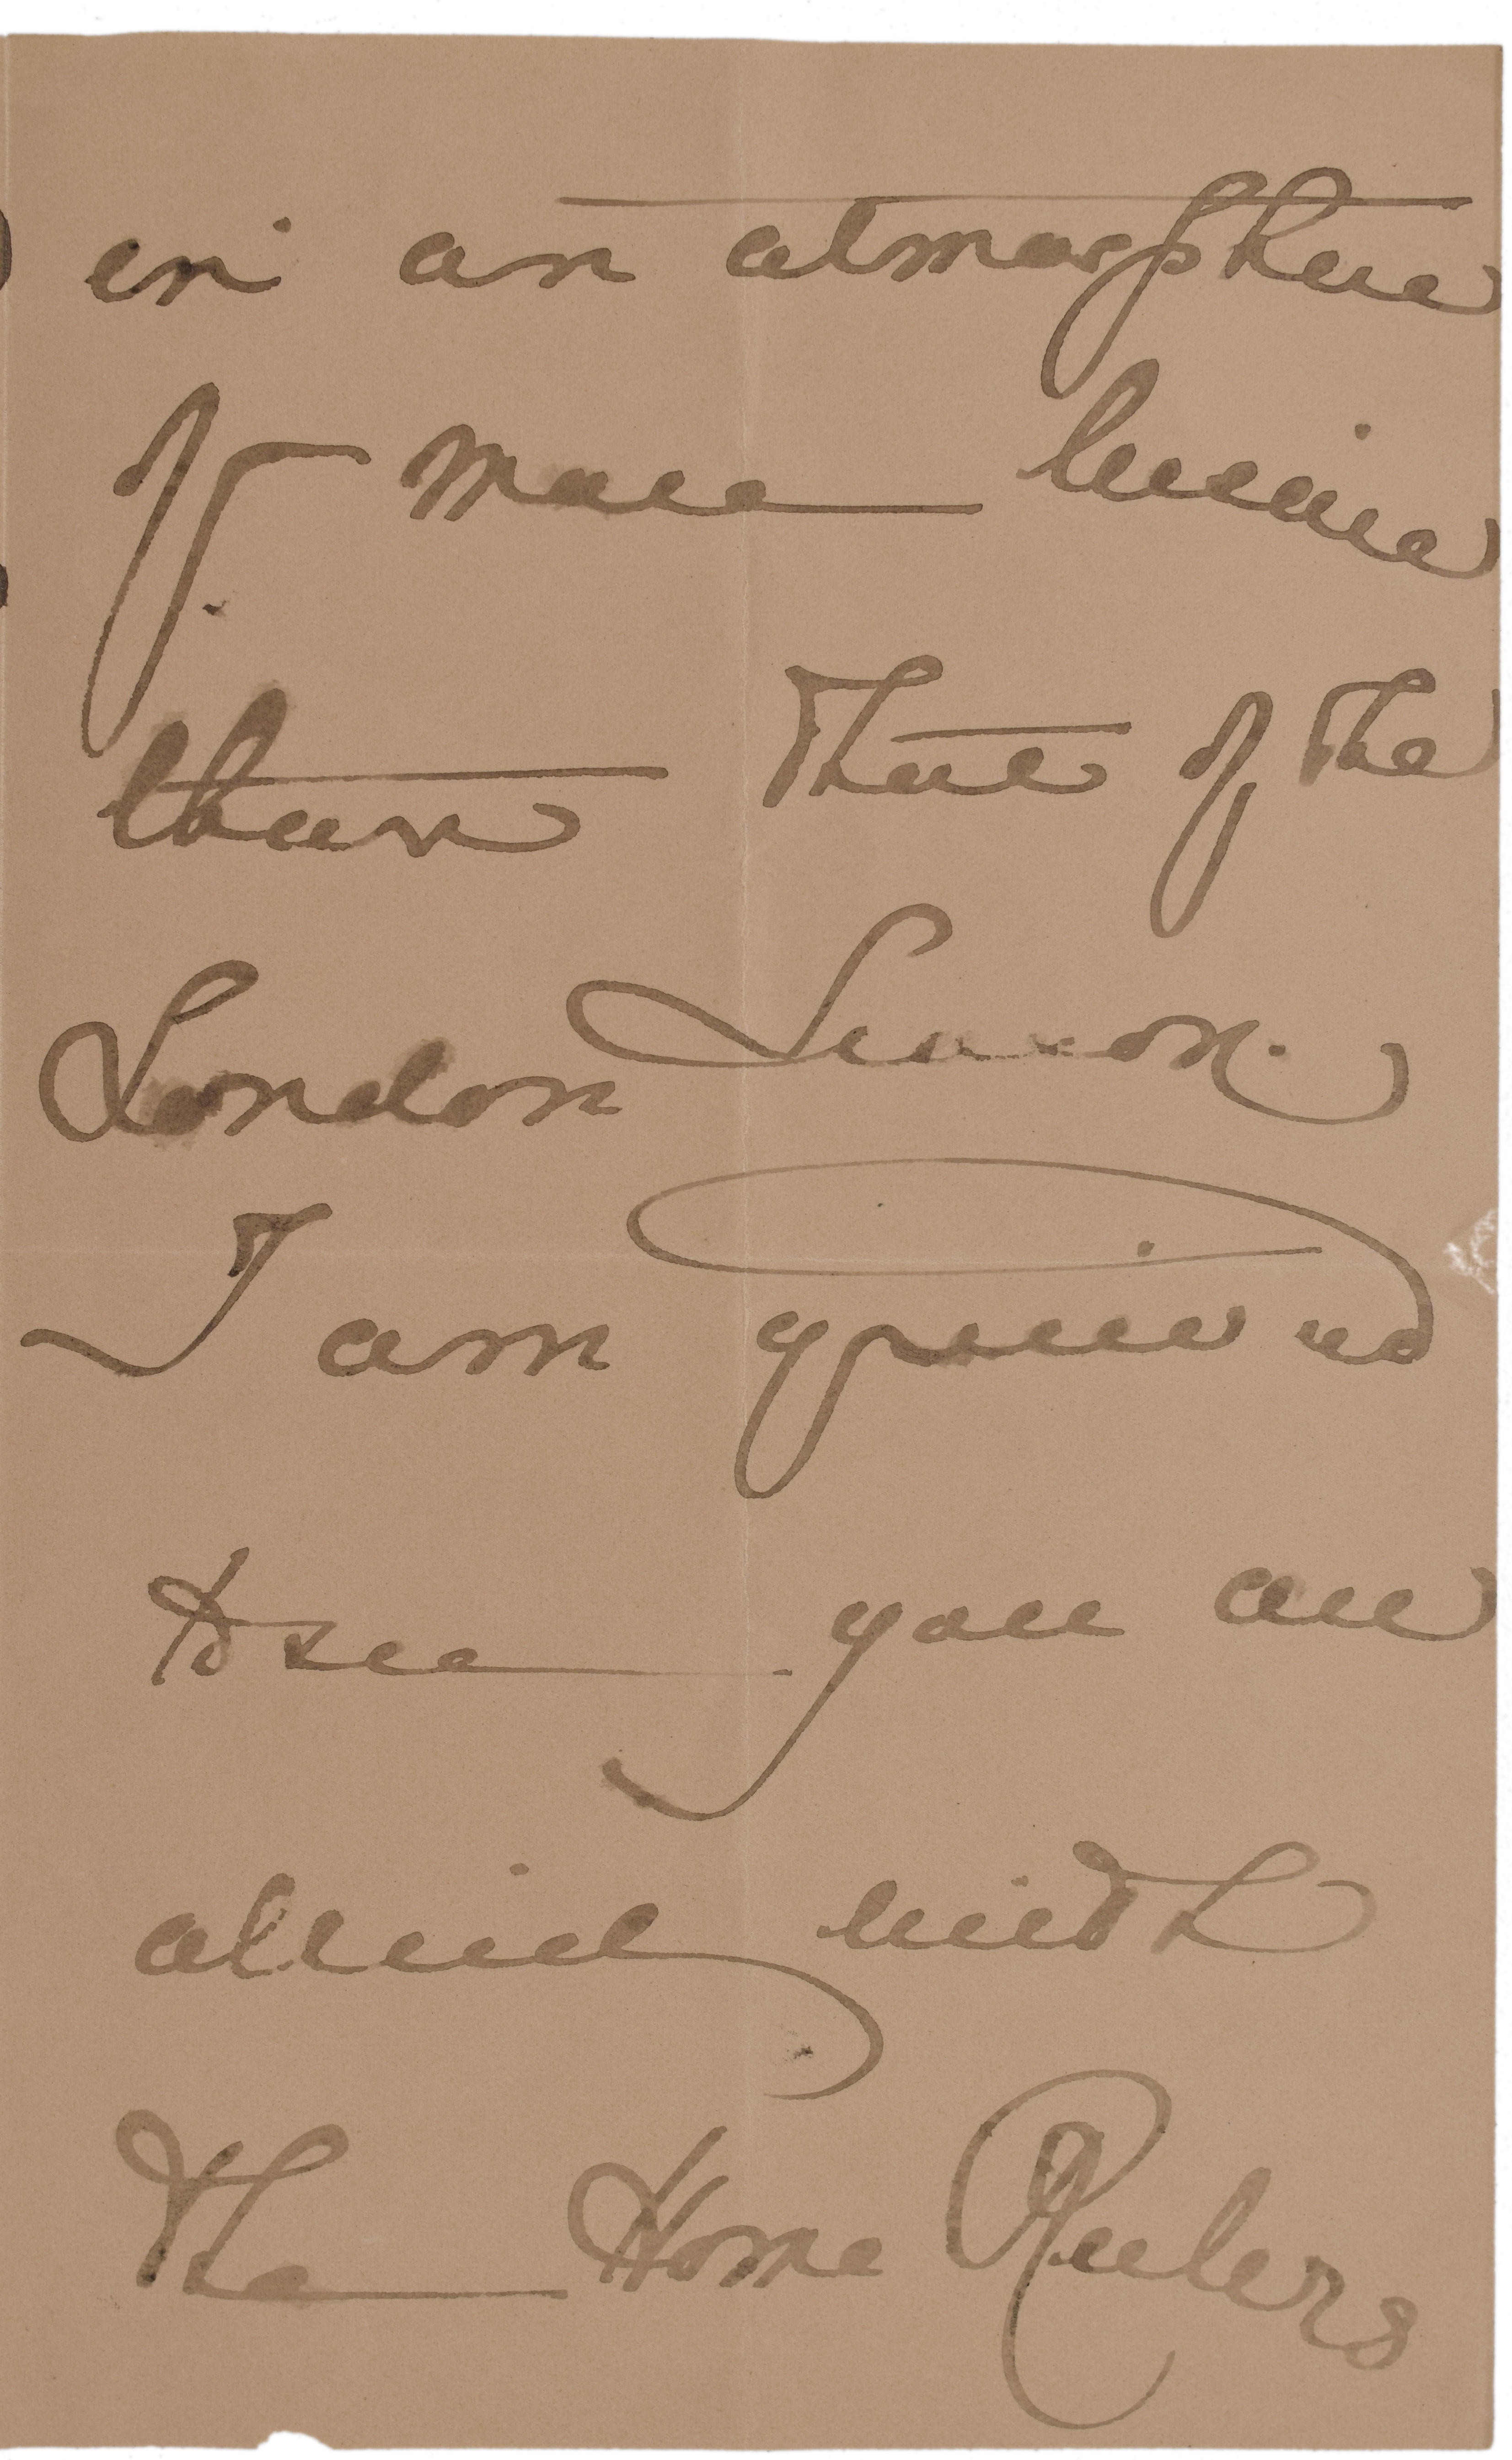 in an atmosphere
of more
than that of the
London Season.
I am grieved
to see you are
with
the Home Rulers